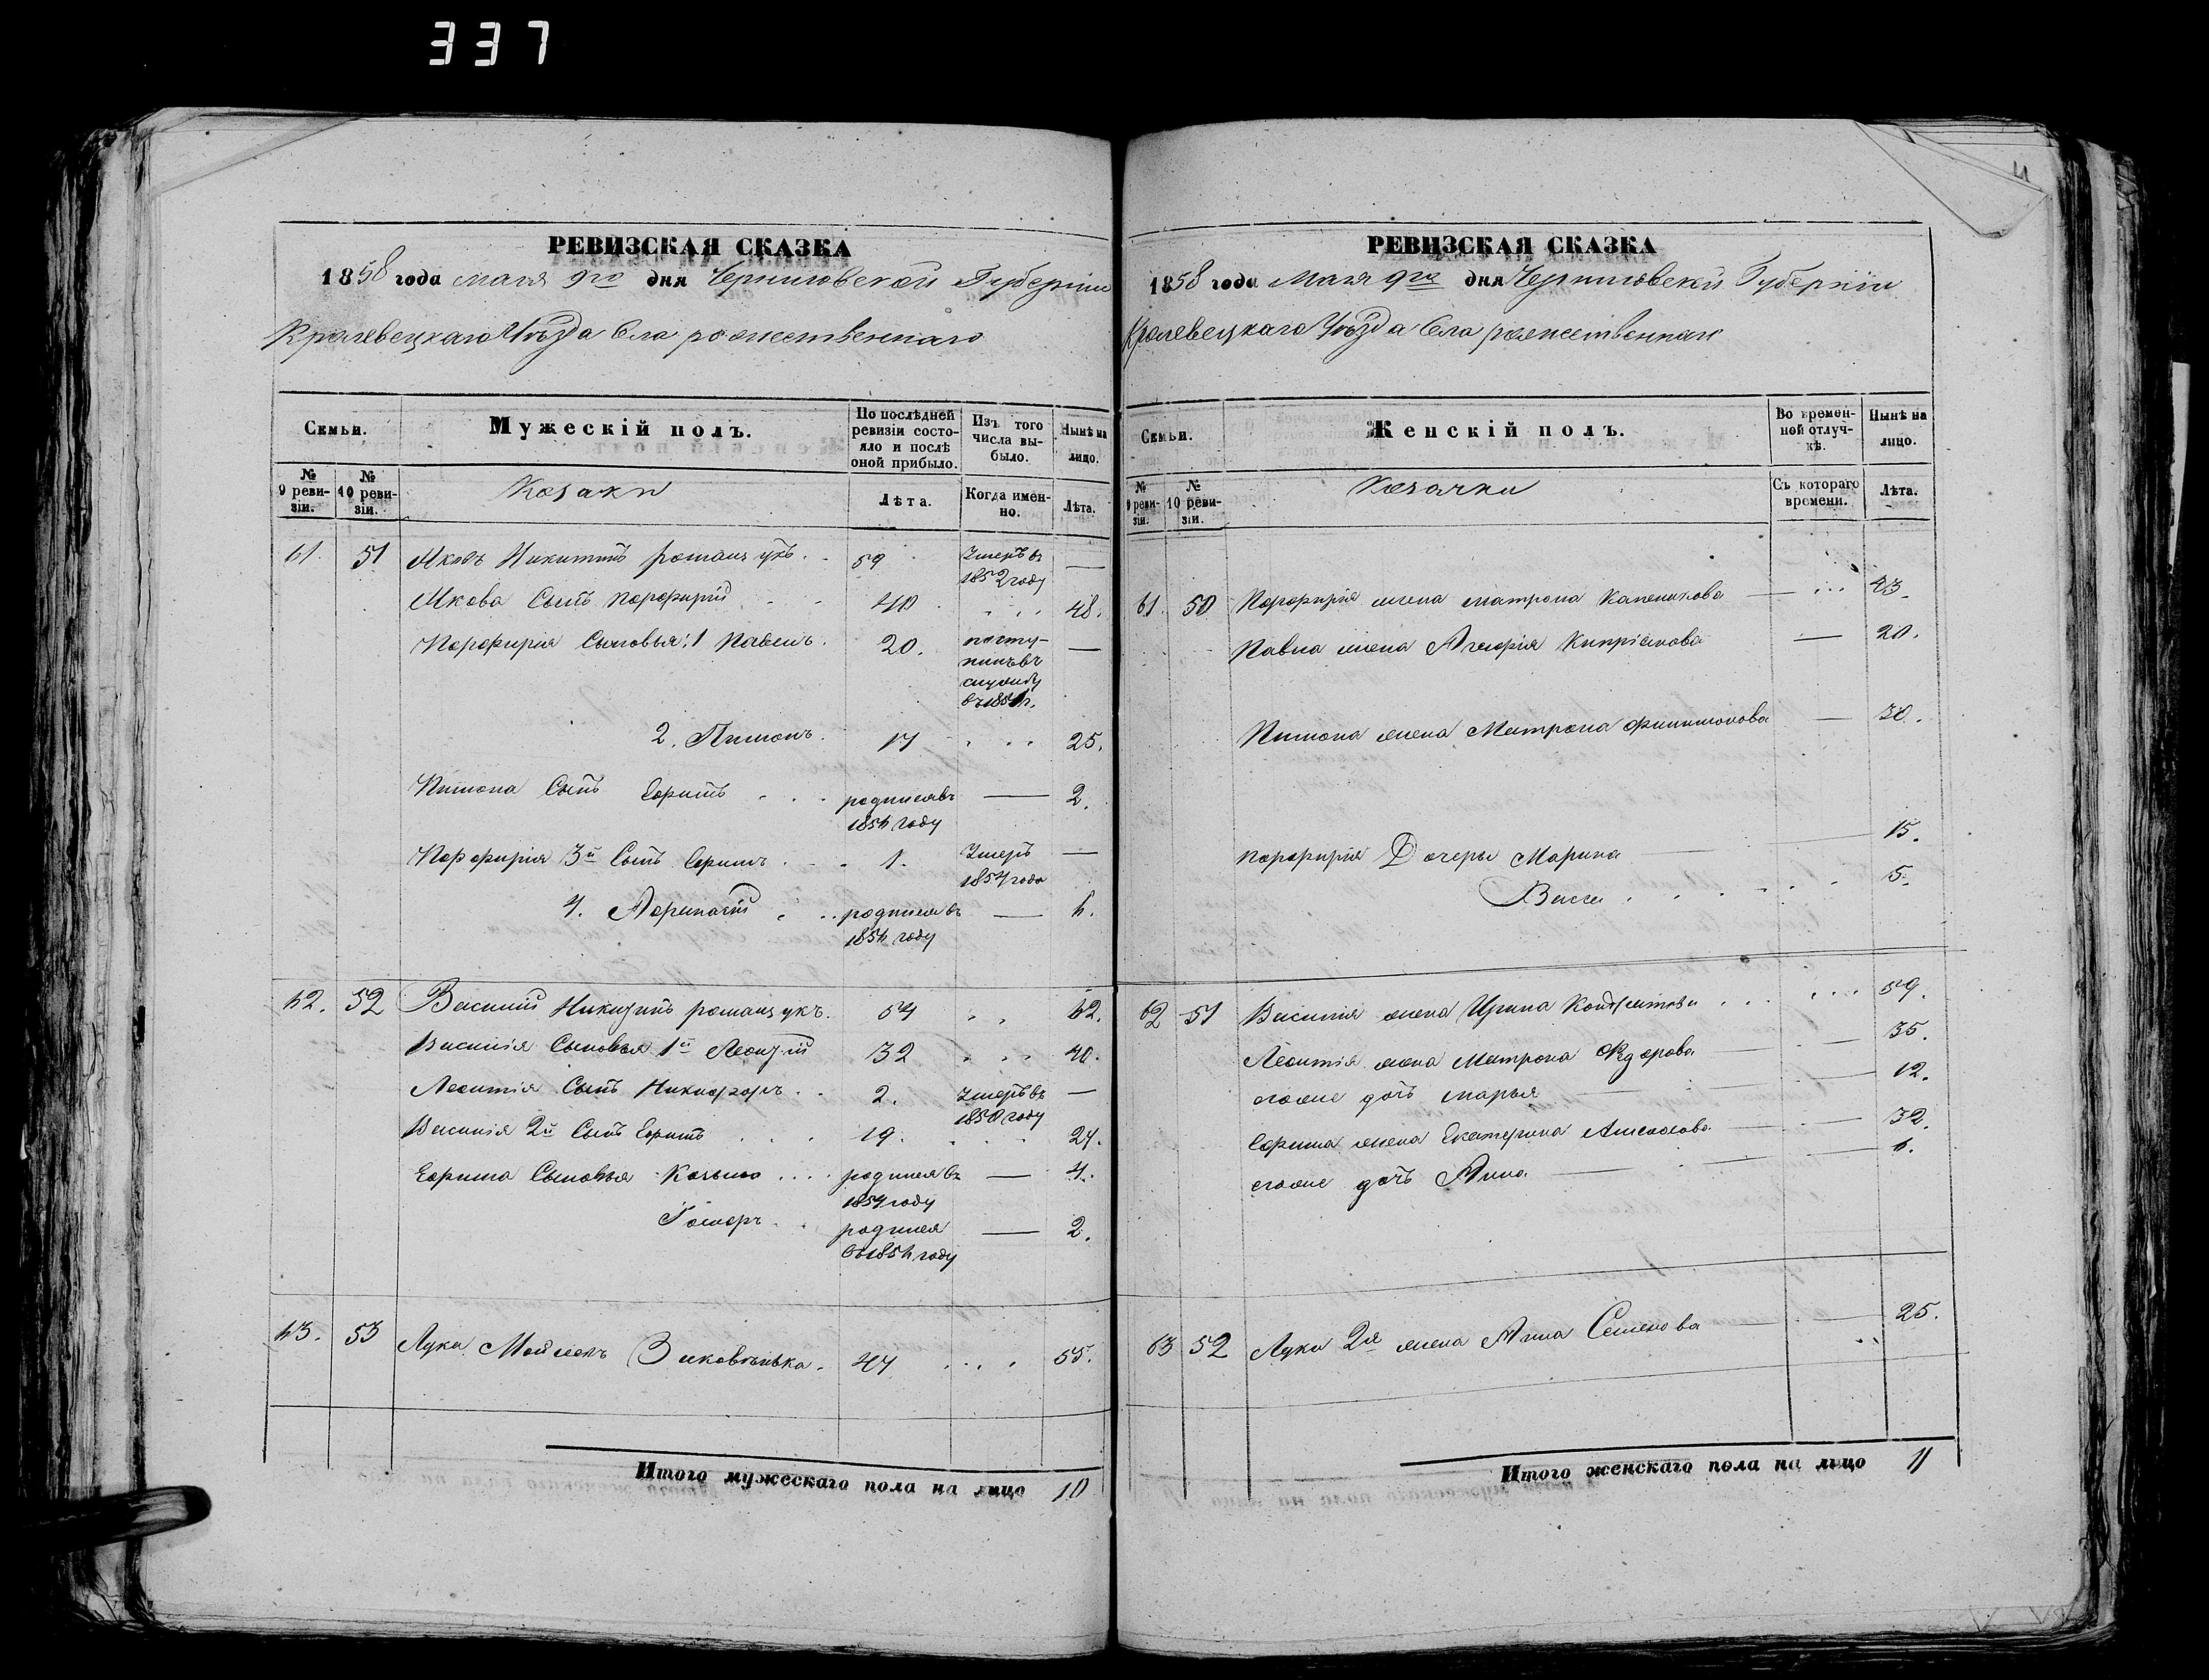 337
РЕВИЗСКАЯ СКАЗКА
1858 года мая 9го дня Черниговской Губернии
Кролевецкаго Уѣзда Села рожественнаго
Семьи.
Мужескій полъ.
По послѣдней ревизіи состояло и послѣ оной прибыло.
Изъ того числа выбыло.
Нынѣ на лицо.
№ 9 ревизіи.
№ 10 ревизіи.
Козаки
Лѣта.
Когда именно.
Лѣта.
61. 51 Яковъ Никитинъ романчукъ. 59 Умеръ въ 1852 году —
Якова Сынъ порфирій 40 48.
Порфирия Сыновья: 1 Павелъ. 20. поступилъ въ службу въ 185 г. —
2. Пимонъ. 17 25.
Пимона Сынъ Ефимъ родился въ 1856 году — 2.
Порфирія 3й Сынъ Ефимъ. 1. Умеръ 1854 года —
4. Афанасій родился въ 185 году — 6.
62. 52 Василий Никитинъ романчукъ. 54 62.
Василія Сыновья 1й Леонтій 32 40.
Леонтія Сынъ Никифоръ 2. Умеръ въ 1850 году —
Василія 2й Сынъ Ефимъ 19. 27.
Ефима Сыновья Козьма родился въ 1854 году — 4.
родился въ 1856 году — 2.
63. 53 Лука 47 55.
Итого мужескаго пола на лицо 10
РЕВИЗСКАЯ СКАЗКА
1858 года Мая 9го дня Черниговской Губерніи
Кролевецкаго Уѣзда Села рожественнаго
Семьи.
Женскій полъ.
Во временной отлучкѣ.
Нынѣ на лицо.
№ 9 ревизіи.
№ 10 ревизіи.
Козачки
Съ котораго времени.
Лѣта.
61. 50 Порфирія жена матрона 43.
Павла жена Кипріянова — 20.
Пимона жена Матрона Филимонова — 30.
порфирія Дочеры Марина — 15.
Васса 5.
62 51 Василія жена Ирина 59.
Леонтія жена Матрона Федорова — 35.
его же дочь марья — 12.
Ефима жена Екатерина — 32.
его же дочь Анна — 6.
63 52 Луки 2я жена Анна Семенова — 25.
Итого женскаго пола на лицо 11